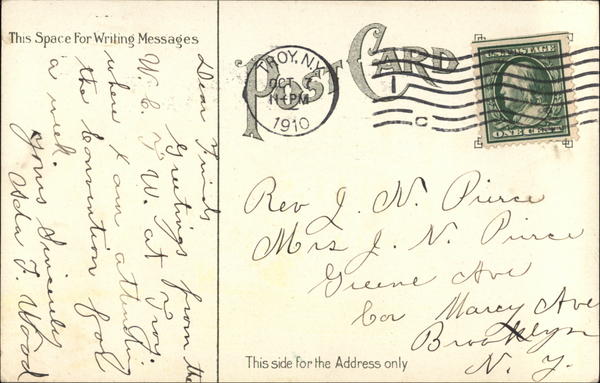 This Space For Writing Messages
Dear Friends
Greetings from the
W. C. T. U. at Troy.
where I am attending
the Convention for
a week.
Yours Sincerely
Ada T. Wood
POST CARD
TROY, N.Y.
OCT
11-PM
1910
C
U.S. POSTAGE
ONE CENT
Rev J. N. Pierce
Mrs J. N. Pierce
Greene Ave
Cor Marcy Ave
Brooklyn
N. Y.
This side for the Address only